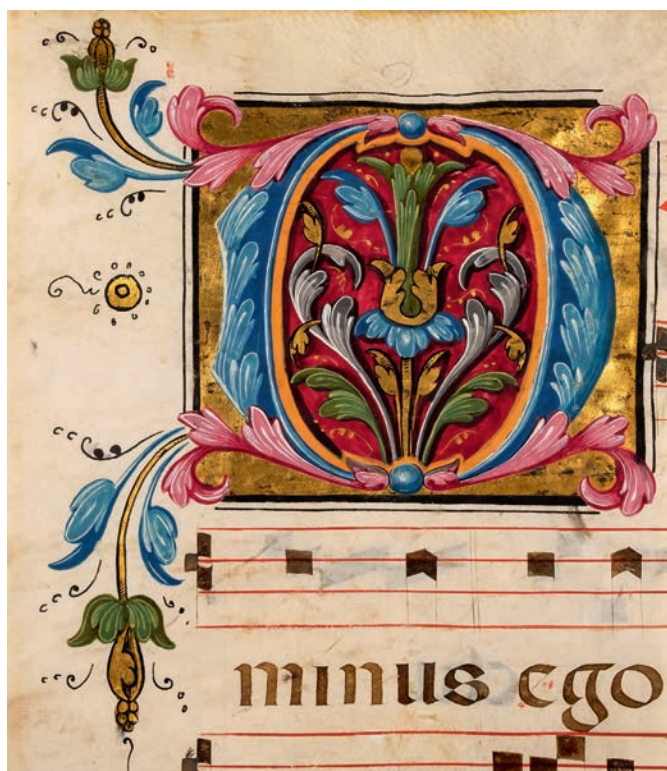 D
minus ego